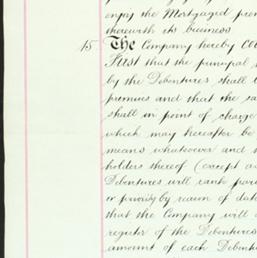 enjoy the Mortgaged prem
therewith its business
15 The Company hereby cov
First that the principal
by the Debentures shall
premises and that the sa
shall in point of charge
which may hereafter be
means whatsoever and
holders thereof (except a
Debentures will rank pari
or priority by reason of dat
that the Company will
register of the Debentures
amount of each Debent